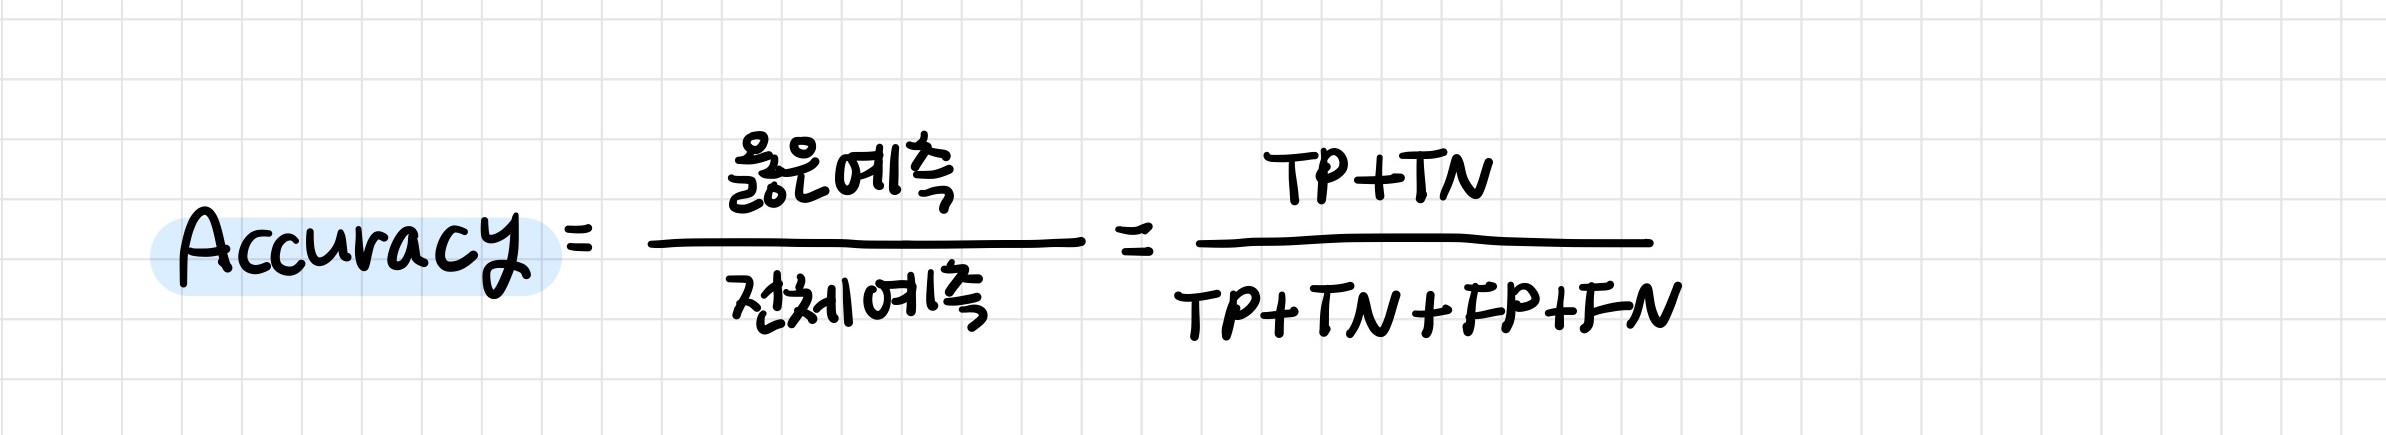 Accuracy = 옳은예측 / 전체예측 = TP+TN / TP+TN+FP+FN